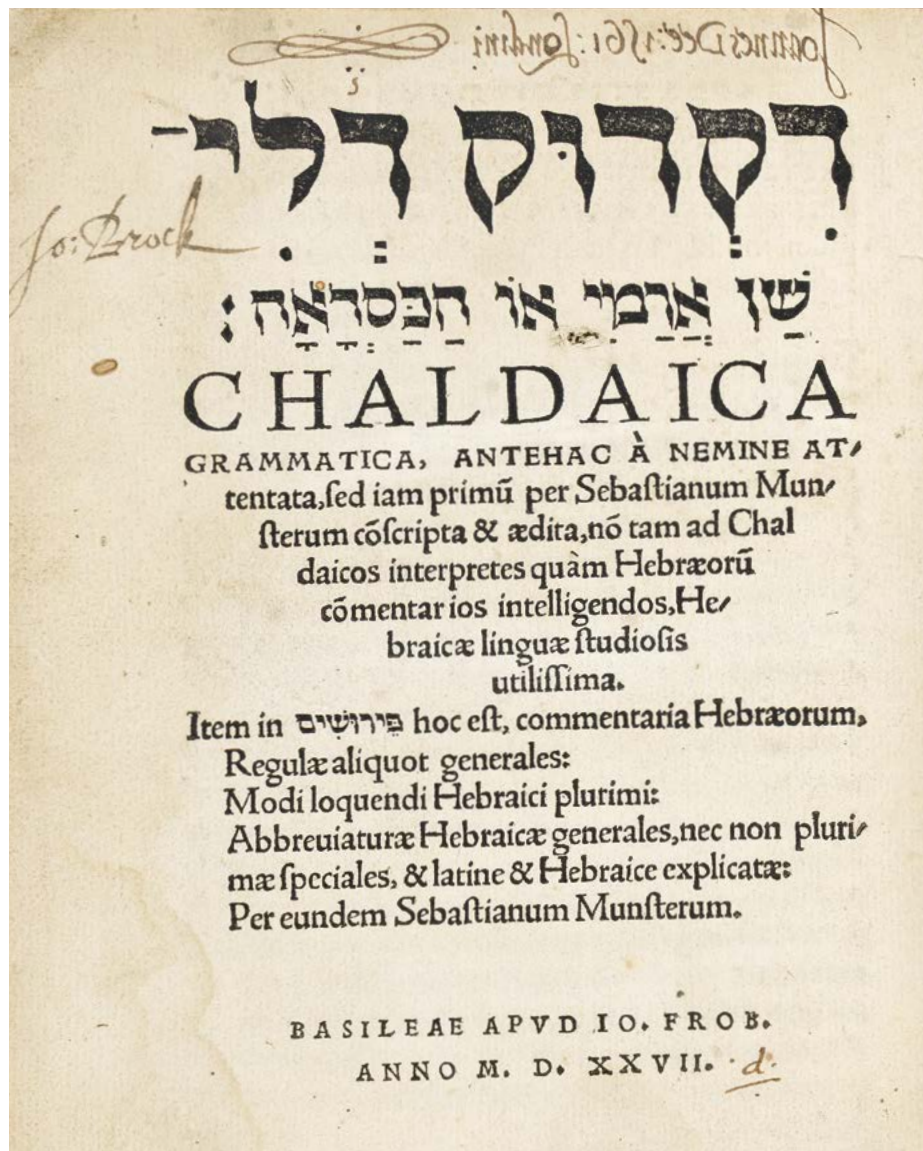 Joannes Dee: 1561: Londini
דִקְדוּק דְלִי־
Jo: Brock
שַׁן אֲרַמִי אוֹ הַכַּסְדָאָה:
CHALDAICA
GRAMMATICA, ANTEHAC À NEMINE AT⸗
tentata, ſed iam primũ per Sebaſtianum Mun⸗
ſterum cõſcripta & ædita, nõ tam ad Chal
daicos interpretes quàm Hebræorũ
cõmentarios intelligendos, He⸗
braicæ linguæ ſtudioſis
utiliſſima.
Item in פֵּירוּשִׁים hoc eſt, commentaria Hebræorum,
Regulæ aliquot generales:
Modi loquendi Hebraici plurimi:
Abbreuiaturæ Hebraicæ generales, nec non pluri⸗
mæ ſpeciales, & latine & Hebraice explicatæ:
Per eundem Sebaſtianum Munſterum.
BASILEAE APVD IO. FROB.
ANNO M. D. XXVII. d.